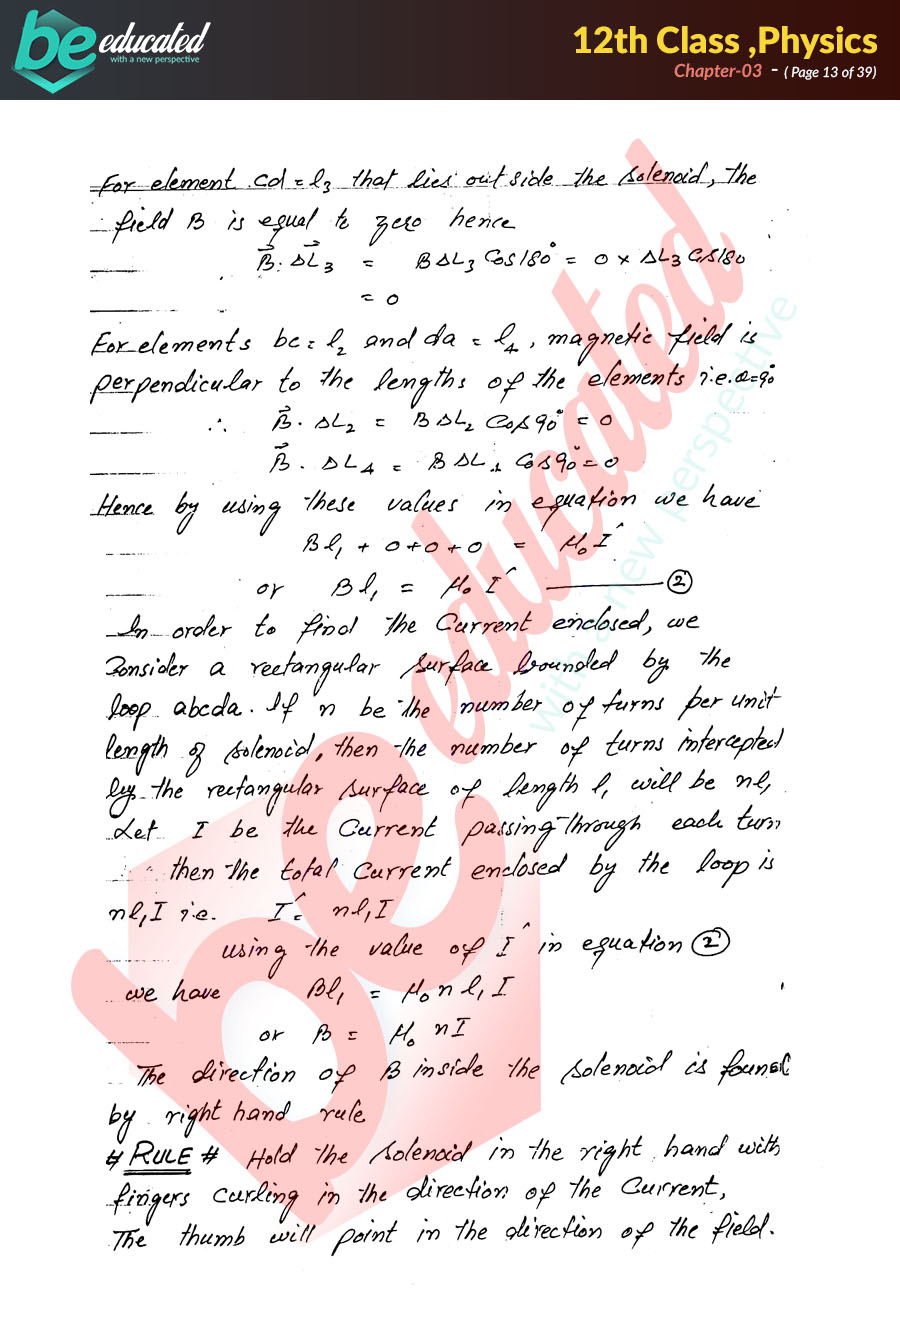 be educated
with a new perspective
12th Class ,Physics
Chapter-03 - ( Page 13 of 39)
For element cd = l₃ that lies out side the solenoid, the
field B is equal to zero hence
B⃗. ΔL⃗₃ = BΔL₃ Cos180° = 0 × ΔL₃ Cos180
= 0
For elements bc = l₂ and da = l₄, magnetic field is
perpendicular to the lengths of the elements i.e. θ=90°
∴ B⃗. ΔL₂ = BΔL₂ Cos90° = 0
B⃗. ΔL₄ = BΔL₄ Cos90° = 0
Hence by using these values in equation we have
Bl₁ + 0+0+0 = μ₀I′
or Bl₁ = μ₀I′ ——— ②
In order to find the Current enclosed, we
Consider a rectangular surface bounded by the
loop abcda. If n be the number of turns per unit
length of solenoid, then the number of turns intercepted
by the rectangular surface of length l, will be nl,
Let I be the Current passing through each turn
then the total Current enclosed by the loop is
nl₁I i.e. I′ = nl₁I
using the value of I′ in equation ②
we have Bl₁ = μ₀nl₁I
or B = μ₀nI
The direction of B inside the solenoid is found
by right hand rule
# RULE # Hold the solenoid in the right hand with
fingers curling in the direction of the Current,
The thumb will point in the direction of the field.
be educated
with a new perspective